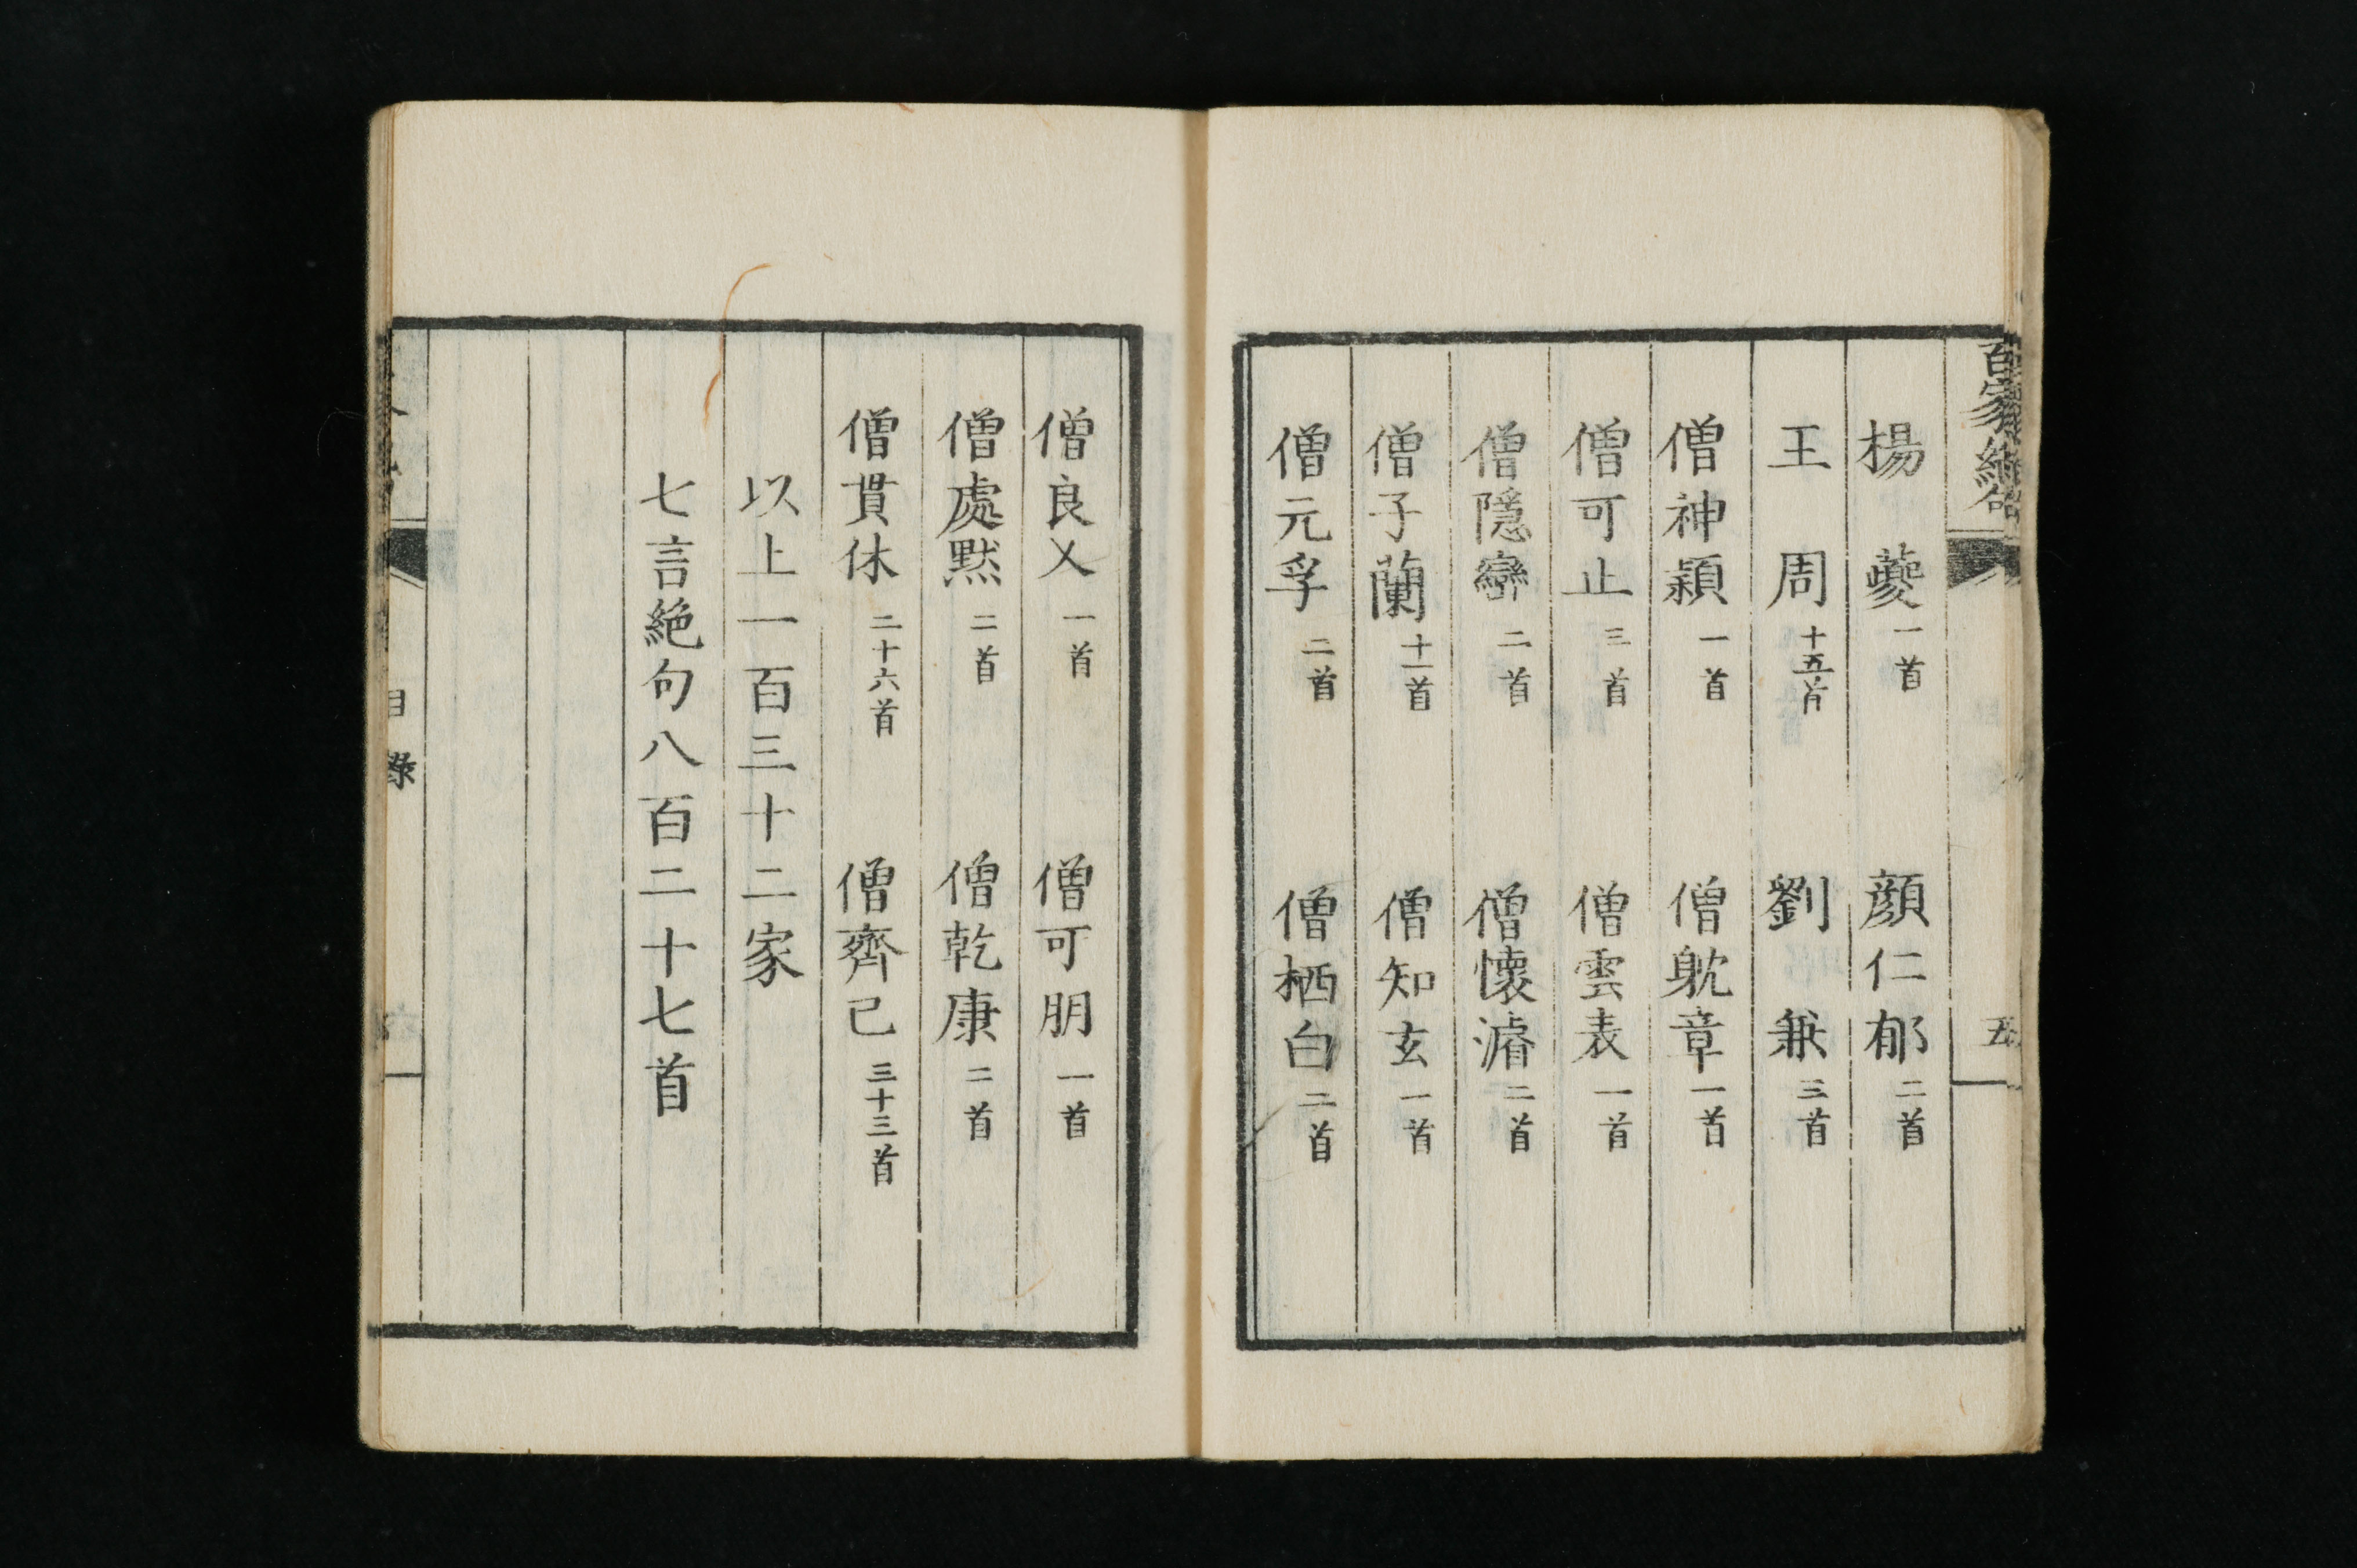 百家絶句
五
楊夔 一首 顔仁郁 二首
王周 十五首 劉兼 三首
僧神穎 一首 僧躭章 一首
僧可止 三首 僧雲表 一首
僧隱巒 二首 僧懷濬 二首
僧子蘭 十一首 僧知玄 一首
僧元孚 二首 僧栖白 二首
僧良乂 一首 僧可朋 一首
僧處黙 二首 僧乾康 二首
僧貫休 二十六首 僧齊己 三十三首
以上一百三十二家
七言絶句八百二十七首
目錄